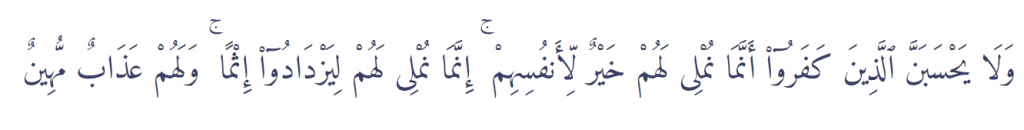 وَلَا يَحْسَبَنَّ ٱلَّذِينَ كَفَرُوٓا۟ أَنَّمَا نُمْلِى لَهُمْ خَيْرٌ لِّأَنفُسِهِمْ ۚ إِنَّمَا نُمْلِى لَهُمْ لِيَزْدَادُوٓا۟ إِثْمًا ۚ وَلَهُمْ عَذَابٌ مُّهِينٌ